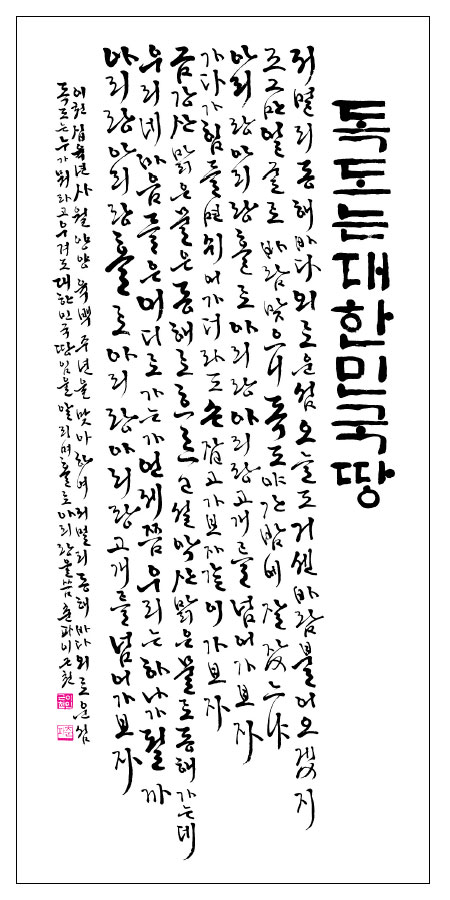 독도는대한민국땅
저 멀리 동해바다 외로운섬 오늘도 거센바람불어오겠지
조그만얼굴로 바람맞으니 독도야 간밤에 잘 잤느냐
아리랑아리랑홀로아리랑아리랑고개를넘어가보자
가다가힘들면쉬어가더라도 손잡고가보자같이가보자
금강산 맑은물은동해로흐르고설악산맑은물도동해가는데
우리네 마음들은어디로가는가언제쯤우리는하나가될까
아리랑아리랑홀로아리랑아리랑고개를넘어가보자
이천십육년사월안양 육백주년을맞아하여 저멀리동해 바다외로운섬
독도는누가뭐라고우겨도대한민국땅임을알리며홀로아리랑을씀